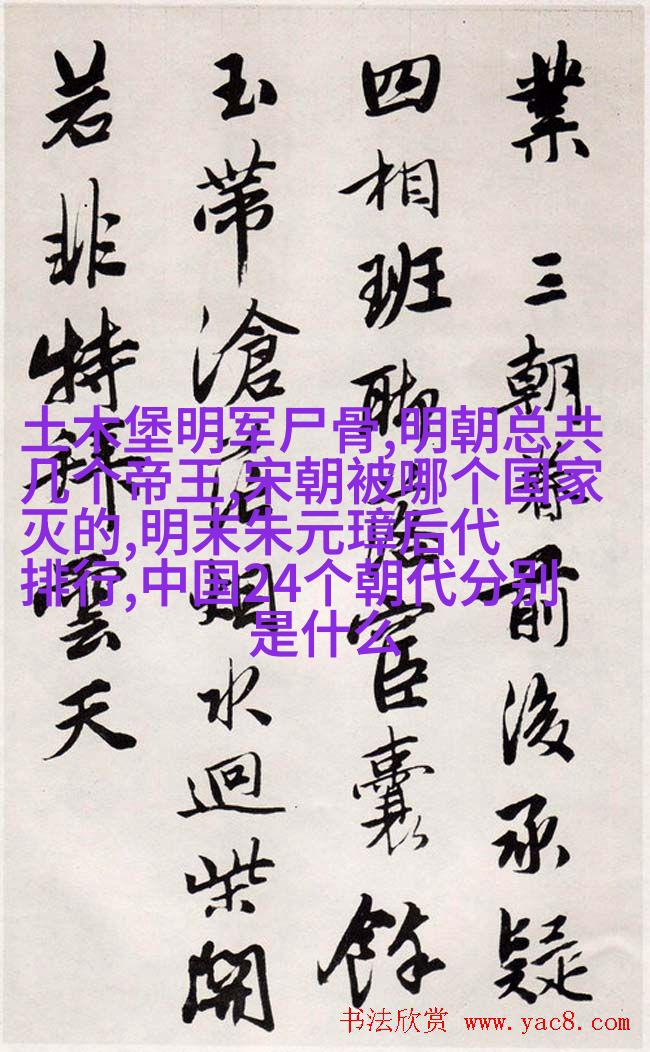 業 三朝眷前後承疑
四相班聯宦囊餘
玉帶滄浪烟水迴柴開
若非特拜雲天
土木堡明军尸骨,明朝总共
几个帝王,宋朝被哪个国家
灭的,明末朱元璋后代
排行,中国24个朝代分别
是什么
书法欣赏 www.yac8.com